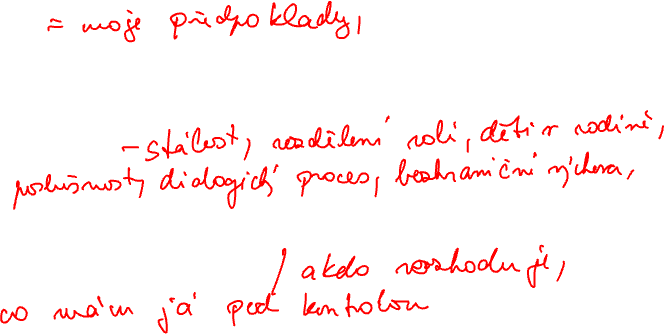 = moje předpoklady,
- stálost, rozdělení rolí, děti v rodině,
poslušnost, dialogický proces, bezhraniční výchova,
/ a kdo rozhoduje,
co mám já pod kontrolou